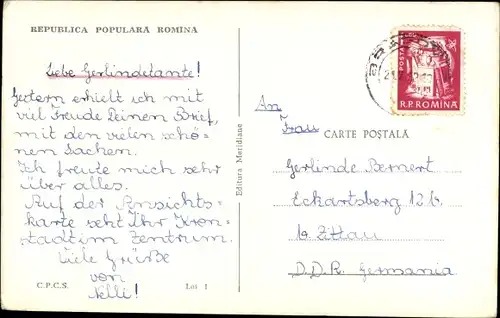 REPUBLICA POPULARĂ ROMINA
Liebe Gerlindetante!
Gestern erhielt ich mit
viel Freude Deinen Brief,
mit den vielen schö-
nen Sachen.
Ich freute mich sehr
über alles.
Auf der Ansichts-
karte seht Ihr Kron-
stadt im Zentrum.
Viele Grüße
von
Nelli!
C.P.C.S.
Lei 1
Editura Meridiane
POSTA
R.P. ROMINA
An
Frau
CARTE POȘTALĂ
Gerlinde Bernert
Eckartsberg 12b
Zittau
D.D.R. Germania